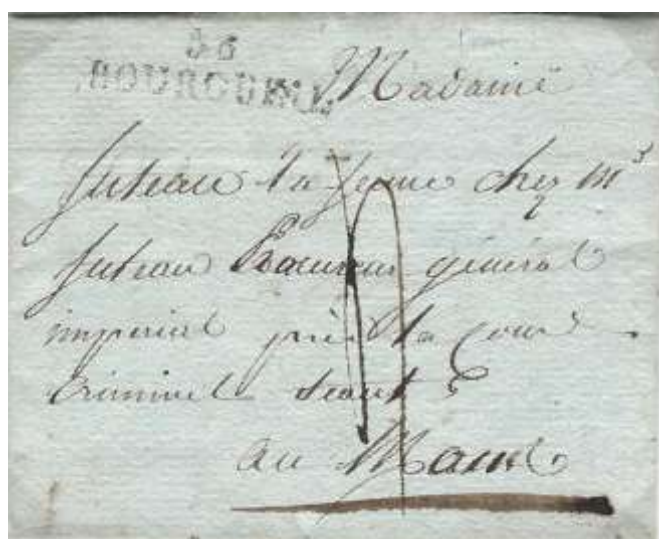 36
BOURGUEIL
Madame
Juteau la jeune chez Mr
Juteau Procureur général
imperial près la Cour
Criminel Séant
au Mans